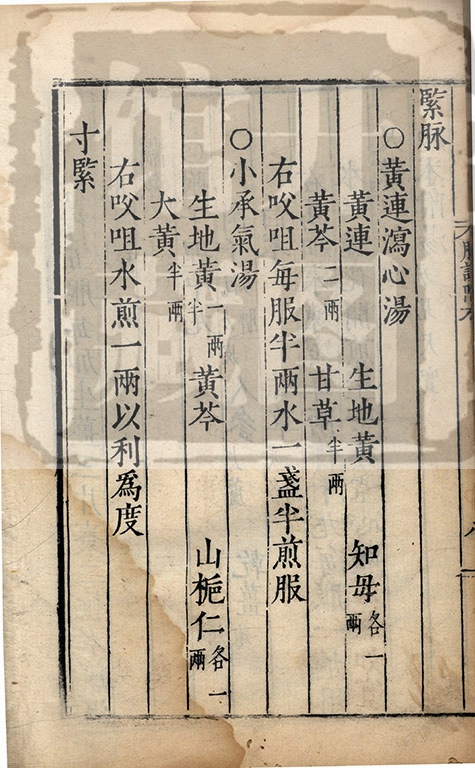 緊脉
○黃連瀉心湯
黃連 生地黃 知母各一兩
黃芩二兩 甘草半兩
右㕮咀每服半兩水一盞半煎服
○小承氣湯
生地黃一兩半 黃芩 山梔仁各一兩
大黃半兩
右㕮咀水煎一兩以利爲度
寸緊